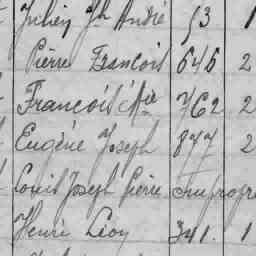 Julien Jh André 53 1
Pierre François 646 2
François Mie 762 2
Eugène Joseph 877 2
Louis Joseph Pierre impropre
Henri Léon 341. 1